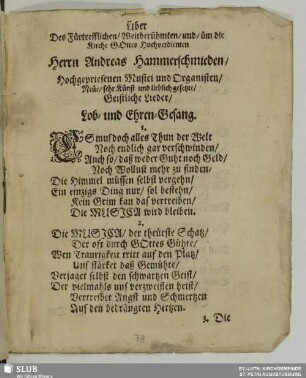 Uber
Des Fürtrefflichen/ Weitberühmten/ und/ üm die
Kirche GOttes Hochverdienten
Herrn Andreas Hammerschmieden/
Hochgepriesenen Musici und Organisten/
Neüe/ sehr Künst- und lieblich gesetzte/
Geistliche Lieder/
Lob- und Ehren-Gesang.
1.
ES mus doch alles Thun der Welt
Noch endlich gar verschwinden/
Auch so/ daß weder Guht noch Geld/
Noch Wollust mehr zu finden/
Die Himmel müssen selbst vergehn/
Ein einzigs Ding nur/ sol bestehn/
Kein Grim kan das vertreiben/
Die MUSICA wird bleiben.
2.
Die MUSICA/ der theürste Schatz/
Der oft durch GOttes Gühte/
Wen Traurigkeit tritt auf den Platz/
Uns stärket daß Gemühte/
Verjaget selbst den schwartzen Geist/
Der vielmahls uns verzweiflen heist/
Vertreibet Angst und Schmertzen
Aus den bedrängten Hertzen.
3. Die
SLUB
Wir führen Wissen.
EV.-LUTH. KIRCHGEMEINDE
ST. PETRI AUGUSTUSBURG